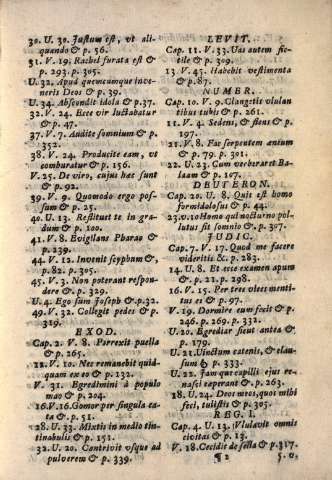 30. U. 30. Justum est, vt ali-
quando & p. 56.
31. V. 19. Rachel furata est &
p. 293. p. 305.
U. 32. Apud quemcumque inve-
neris Deos & p. 39.
U. 34. Abscondit idola & p. 37.
32. V. 24. Ecce vir luctabatur
& p. 47.
37. V. 7. Audite somnium & p.
352.
38. V. 24. Producite eam, vt
comburatur & p. 156.
V. 25. De viro, cujus hæc sunt
& p. 92.
39. V. 9. Quomodo ergo pos-
sum & p. 25.
40. U. 13. Restituet te in gra-
dum & p. 100.
41. V. 8. Evigilans Pharao &
p. 239.
44. V. 12. Invenit scyphum &,
p. 82. p. 305.
45. V. 3. Non poterant respon-
dere & p. 329.
U. 4. Ego sum Joseph & p. 32.
49. V. 32. Collegit pedes & p.
319.
EXOD.
Cap. 2. V. 8. Perrexit puella
& p. 265.
12. V. 10. Nec remanebit quid-
quam ex eo & p. 132.
V. 31. Egredimini à populo
meo & p. 204.
16. V. 16. Gomor per singula ca-
ta & p. 51.
28. U. 33. Mixtis in medio tin-
tinabulis & p. 151.
32. U. 20. Contrivit usque ad
pulverem & p. 339.
LEVIT.
Cap. 11. V. 33. Uas autem fic-
tile & p. 309.
13. V. 45. Habebit vestimenta
& p. 87.
NUMBR.
Cap. 10. V. 9. Clangetis vlulan
tibus tubis & p. 261.
11. V. 4. Sedens, & flens & p.
197.
21. V. 8. Fac serpentem æneum
& p. 79. p. 301.
22. U. 23. Cum verberaret Ba-
laam & p. 107.
DEUTERON.
Cap. 20. U. 8. Quit est homo
formidolosus & p. 44.
23. v. 10 Homo qui nocturno pol-
lutus sit somnio & p. 307.
JUDIC.
Cap. 7. V. 17. Quod me facere
videritis &. p. 283.
14. U. 8. Et ecce examen apum
& p. 21. p. 298.
16. V. 15. Per tres vices menti-
tus es & p. 97.
V. 19. Dormire eum fecit & p.
246. p. 269. p. 332.
U. 20. Egrediar sicut antea &
p. 179.
U. 21. Vinctum catenis, & clau-
sum & p. 333.
U. 22. Jam que capilli ejus re-
nasci ceperant & p. 263.
18. U. 24. Deos meos, quos mihi
feci, tulistis & p. 305.
REG. I.
Cap. 4. U. 13. Vlulavit omnis
civitas & p. 13.
V. 18. Cecidit de sella & p. 317.
¶ 2
5. v.